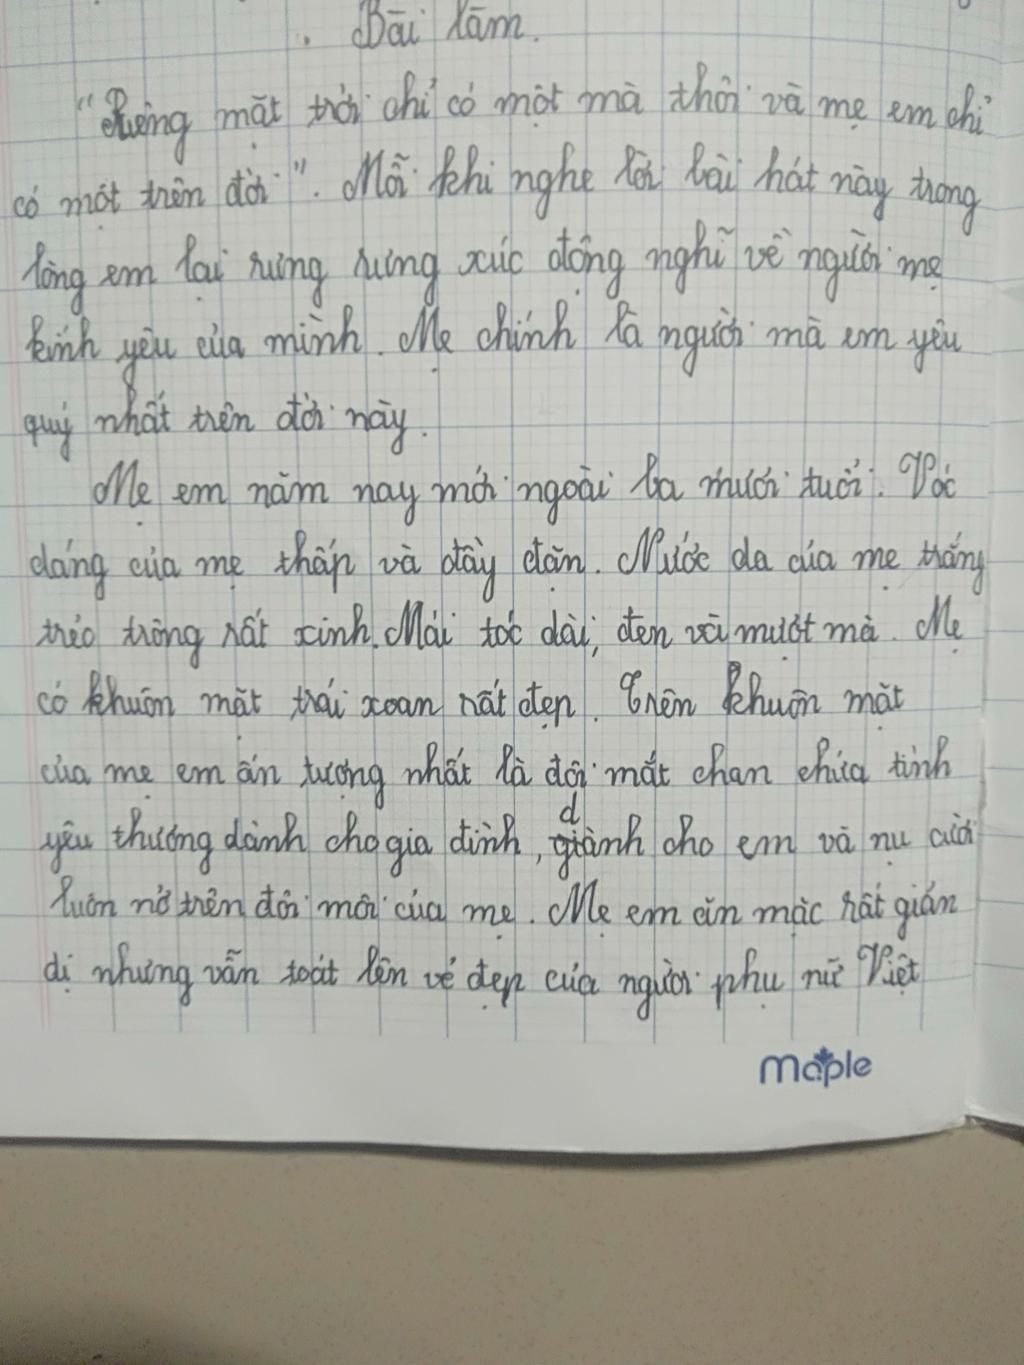 Bài làm.
"Riêng mặt trời chỉ có một mà thôi và mẹ em chỉ
có một trên đời". Mỗi khi nghe lời bài hát này trong
lòng em lại rưng rưng xúc động nghĩ về người mẹ
kính yêu của mình. Mẹ chính là người mà em yêu
quý nhất trên đời này.
Mẹ em năm nay mới ngoài ba mươi tuổi. Vóc
dáng của mẹ thấp và đầy đặn. Nước da của mẹ trắng
trẻo trông rất xinh. Mái tóc dài, đen và mượt mà. Mẹ
có khuôn mặt trái xoan rất đẹp. Trên khuôn mặt
của mẹ em ấn tượng nhất là đôi mắt chan chứa tình
yêu thương dành cho gia đình, giành cho em và nụ cười
d
luôn nở trên đôi môi của mẹ. Mẹ em ăn mặc rất giản
dị nhưng vẫn toát lên vẻ đẹp của người phụ nữ Việt
maple